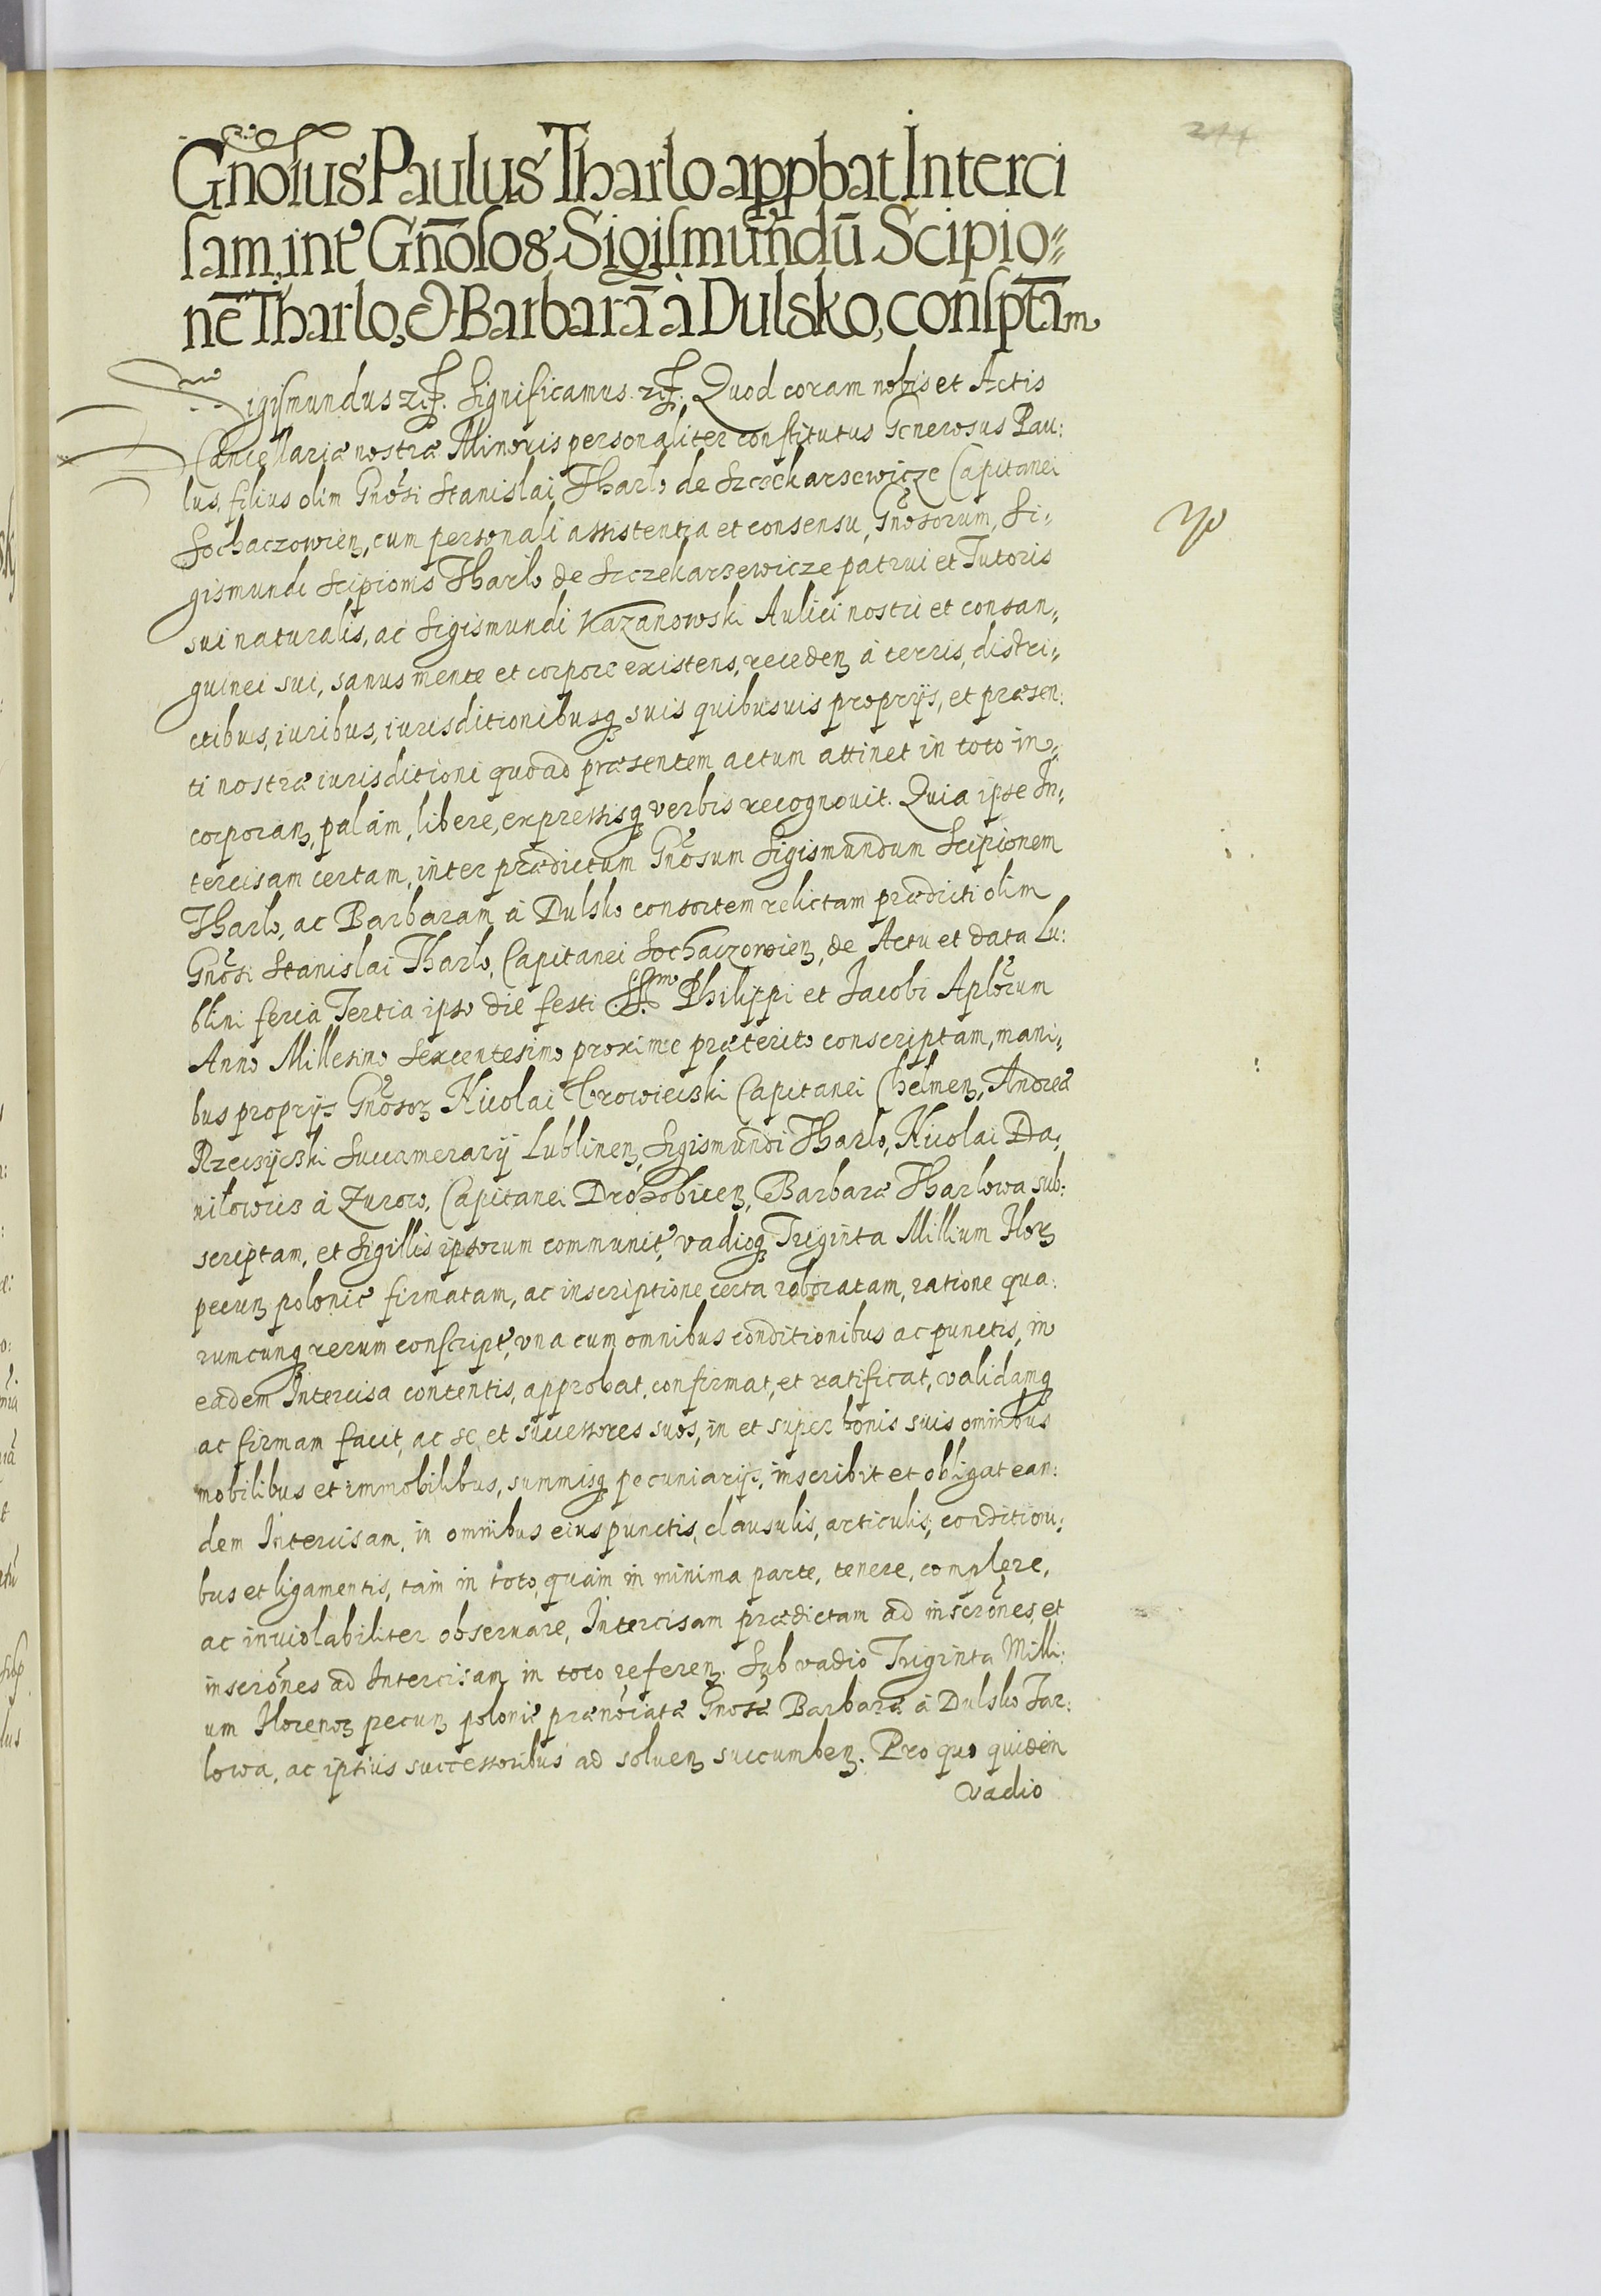 Gnõsus Paulus Tharlo appbat Interci
sam, int' Gnõsos Sigismundũ Scipio=
nẽ Tharlo, & Barbarã à Dulsko, consptam
Sigismundus etc. Significamus etc. Quod coram nobis et Actis
Cancellariæ nostræ Minoris personaliter constitutus Generosus Pau:
lus, filius olim Gnõsi Stanislai Tharlo de Szczekarzewicze Capitanei
Sochaczowien, cum personali assistentia et consensu, Gnõsorum, Si=
gismundi Scipionis Tharlo de Szczekarzewicze patrui et Tutoris
sui naturalis, ac Sigismundi Kazanowski Aulici nostri et consan=
guinei sui, sanus mente et corpore existens, receden à terris, distri=
ctibus, iuribus, iurisditionibusq suis quibusuis proprijs, et præsen:
ti nostræ iurisditioni quoad præsentem actum attinet in toto in=
corporan, palàm, libere, expressisq verbis recognouit. Quia ipse In=
tercisam certam, inter prædictum Gnõsum Sigismundum Scipionem
Tharlo, ac Barbaram à Dulsko consortem relictam prædicti olim
Gnõsi Stanislai Tharlo, Capitanei Sochaczowien, de Actu et data Lu:
blini feria Tertia ipso die festi SS. Philippi et Jacobi Aplõrum
Anno Millesimo Sexcentesimo proxime præterito conscriptam, mani=
bus proprijs Gnõsor Nicolai Urowiecski Capitanei Chelmen, Andreæ
Rzeczijcski Succamerarij Lublinen, Sigismundi Tharlo, Nicolai Da=
niłowicz à Zurow, Capitanei Drohobicen, Barbaræ Tharlowa sub:
scriptam, et Sigillis ipsorum communit', vadioq Triginta Millium Flor
pecun polonic' firmatam, ac inscriptione certa roboratam, ratione qua:
rumcunq rerum conscript', vna cum omnibus conditionibus ac punctis, in
eadem Intercisa contentis, approbat, confirmat, et ratificat, validamq
ac firmam facit, ac se et successores suos, in et super bonis suis omnibus
mobilibus et immobilibus, summisq pecuniarijs, inscribit et obligat ean:
dem Intercisam, in omnibus eius punctis, clausulis, articulis, condition:
bus et ligamentis, tam in toto, quàm in minima parte, tenere, complere,
ac inuiolabiliter obseruare, Intercisam prædictam ad inscrõnes, et
inscrõnes ad Intercisam in toto referen. Sub vadio Triginta Milli:
um Florenor pecun polonic' prænõiatæ Gnõsæ Barbaræ à Dulsko Tar:
lowa, ac ipsius successoribus ad soluen succumben. Pro quo quidem
vadio